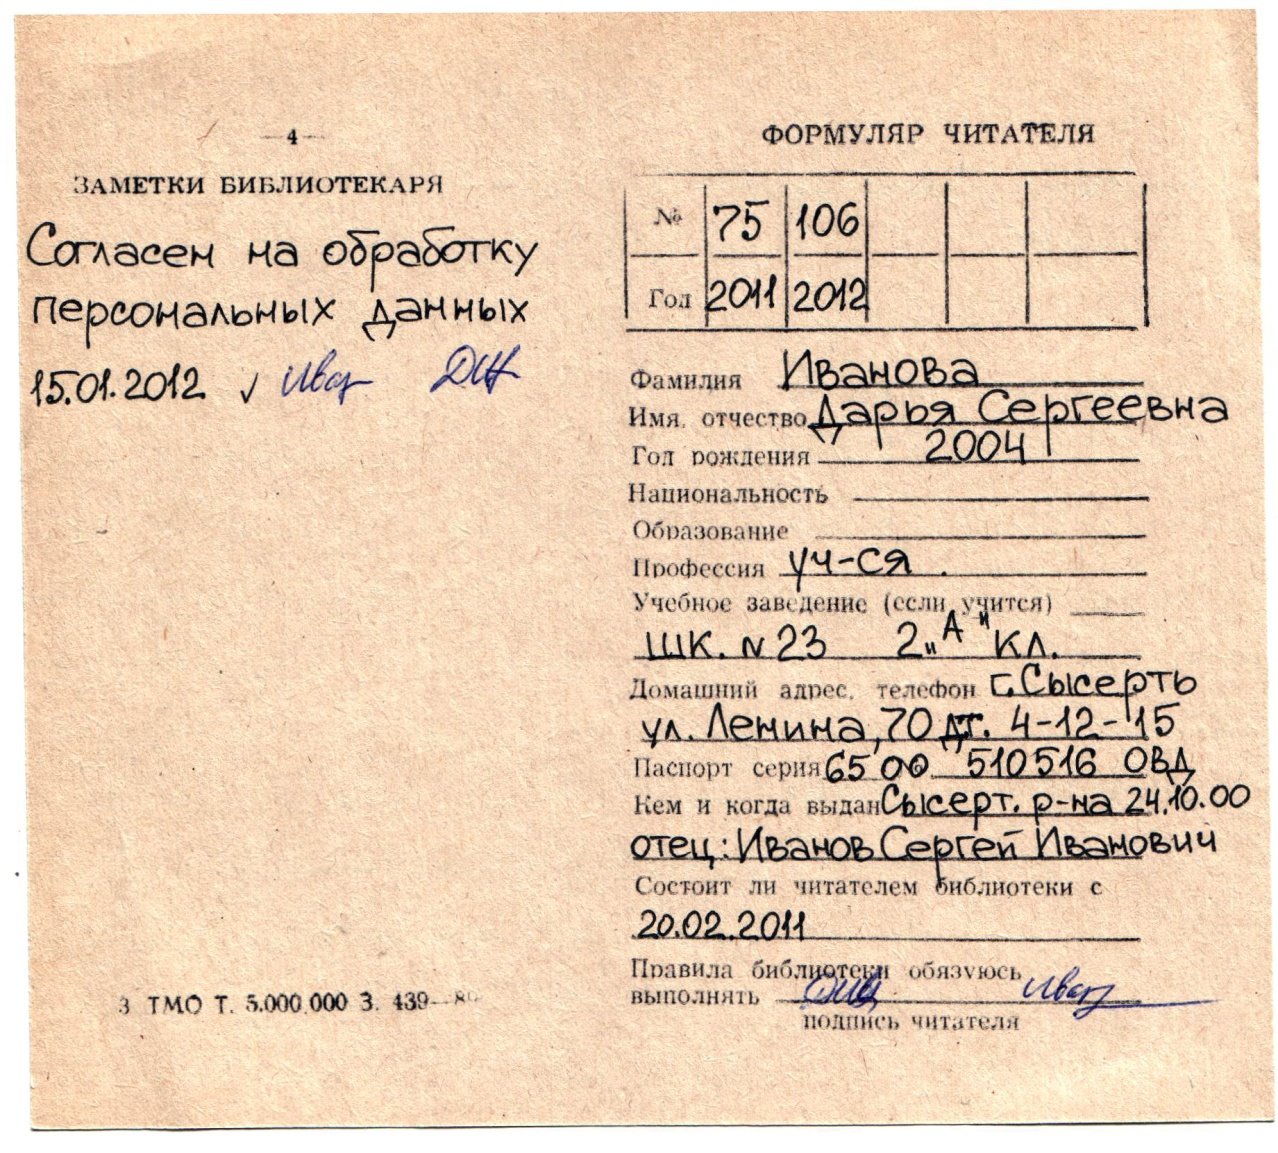 — 4 —
ЗАМЕТКИ БИБЛИОТЕКАРЯ
Согласен на обработку
персональных данных
15.01.2012 √
3 ТМО Т. 5.000.000 З. 439—89
ФОРМУЛЯР ЧИТАТЕЛЯ
№ 75 106
Год 2011 2012
Фамилия Иванова
Имя, отчество Дарья Сергеевна
Год рождения 2004
Национальность
Образование
Профессия уч-ся
Учебное заведение (если учится)
шк. N 23 2 „А" кл.
Домашний адрес, телефон г. Сысерть
ул. Ленина, 70 дт. 4-12-15
Паспорт серия 65 00 510516 ОВД
Кем и когда выдан Сысерт. р-на 24.10.00
отец: Иванов Сергей Иванович
Состоит ли читателем библиотеки с
20.02.2011
Правила библиотеки обязуюсь
выполнять
подпись читателя